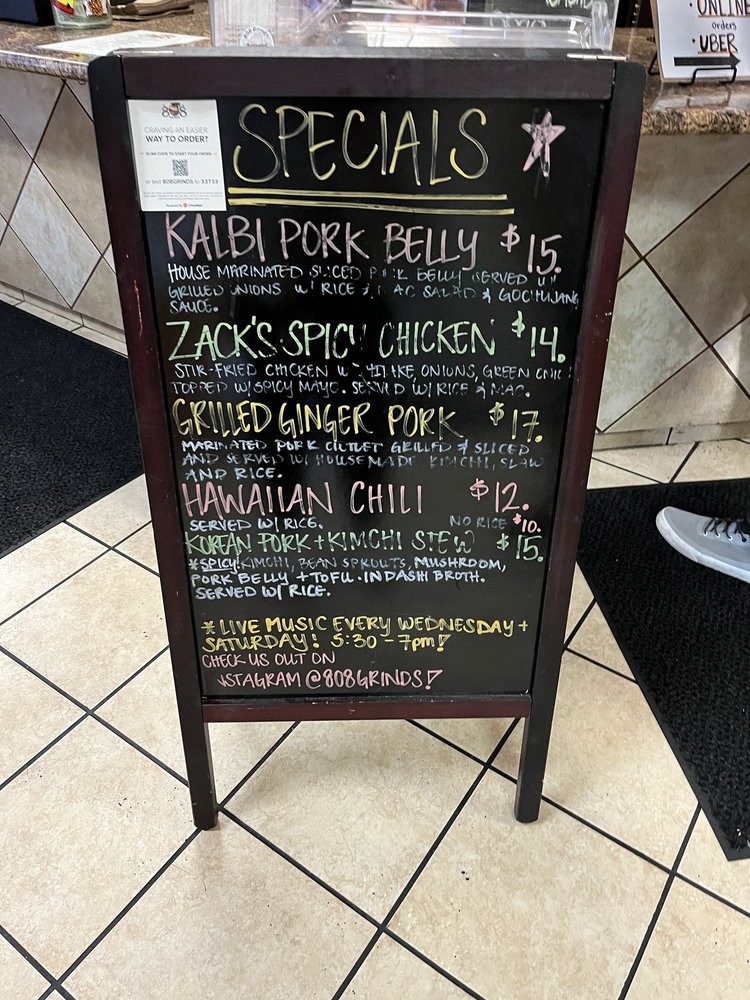 ONLINE
orders
• UBER
CRAVING AN EASIER
WAY TO ORDER?
SCAN CODE TO START YOUR ORDER
or text 808GRINDS to 33733
SPECIALS
KALBI PORK BELLY $15.
HOUSE MARINATED SLICED PORK BELLY SERVED W/
GRILLED ONIONS W/ RICE & MAC SALAD & GOCHUJANG
SAUCE.
ZACK'S SPICY CHICKEN $14.
STIR-FRIED CHICKEN W/ SHITAKE, ONIONS, GREEN
TOPPED W/ SPICY MAYO. SERVED W/ RICE & MAC.
GRILLED GINGER PORK $17.
MARINATED PORK CUTLET GRILLED & SLICED
AND SERVED W/ HOUSEMADE KIMCHI, SLAW
AND RICE.
HAWAIIAN CHILI $12.
SERVED W/ RICE. NO RICE $10.
KOREAN PORK + KIMCHI STEW $15.
*SPICY! KIMCHI, BEAN SPROUTS, MUSHROOM,
PORK BELLY + TOFU. IN DASHI BROTH.
SERVED W/ RICE.
* LIVE MUSIC EVERY WEDNESDAY +
SATURDAY! 5:30 - 7pm!
CHECK US OUT ON
NSTAGRAM @808GRINDS!